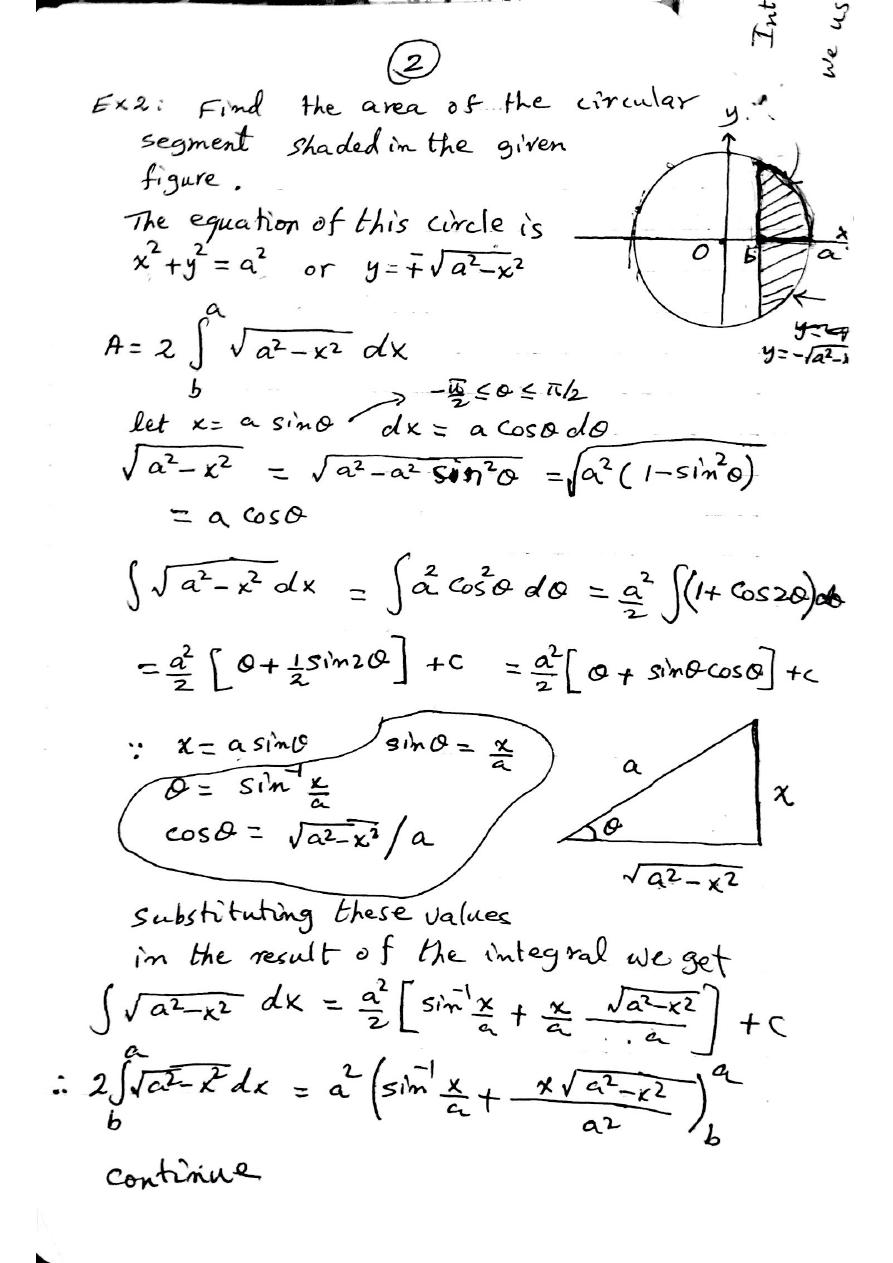 2
Int
We us
Ex2: Find the area of the circular
segment shaded in the given
figure.
The equation of this circle is
x² + y² = a² or y = ∓√(a²-x²)
y
x
O b a
y = -√(a²-x
A = 2 ∫_b^a √(a²-x²) dx
-π/2 ≤ θ ≤ π/2
let x = a sinθ dx = a cosθ dθ
√(a²-x²) = √(a²-a² sin²θ) = √(a²(1-sin²θ))
= a cosθ
∫√(a²-x²) dx = ∫a² cos²θ dθ = a²/2 ∫(1+cos2θ)dθ
= a²/2 [θ + 1/2 sin2θ] + c = a²/2 [θ + sinθ cosθ] + c
∵ x = a sinθ sinθ = x/a
θ = sin⁻¹ x/a
cosθ = √(a²-x²) / a
a
x
θ
√(a²-x²)
Substituting these values
in the result of the integral we get
∫√(a²-x²) dx = a²/2 [sin⁻¹ x/a + x/a √(a²-x²)/a] + c
∴ 2∫_b^a √(a²-x²) dx = a² (sin⁻¹ x/a + x√(a²-x²)/a²)_b^a
continue